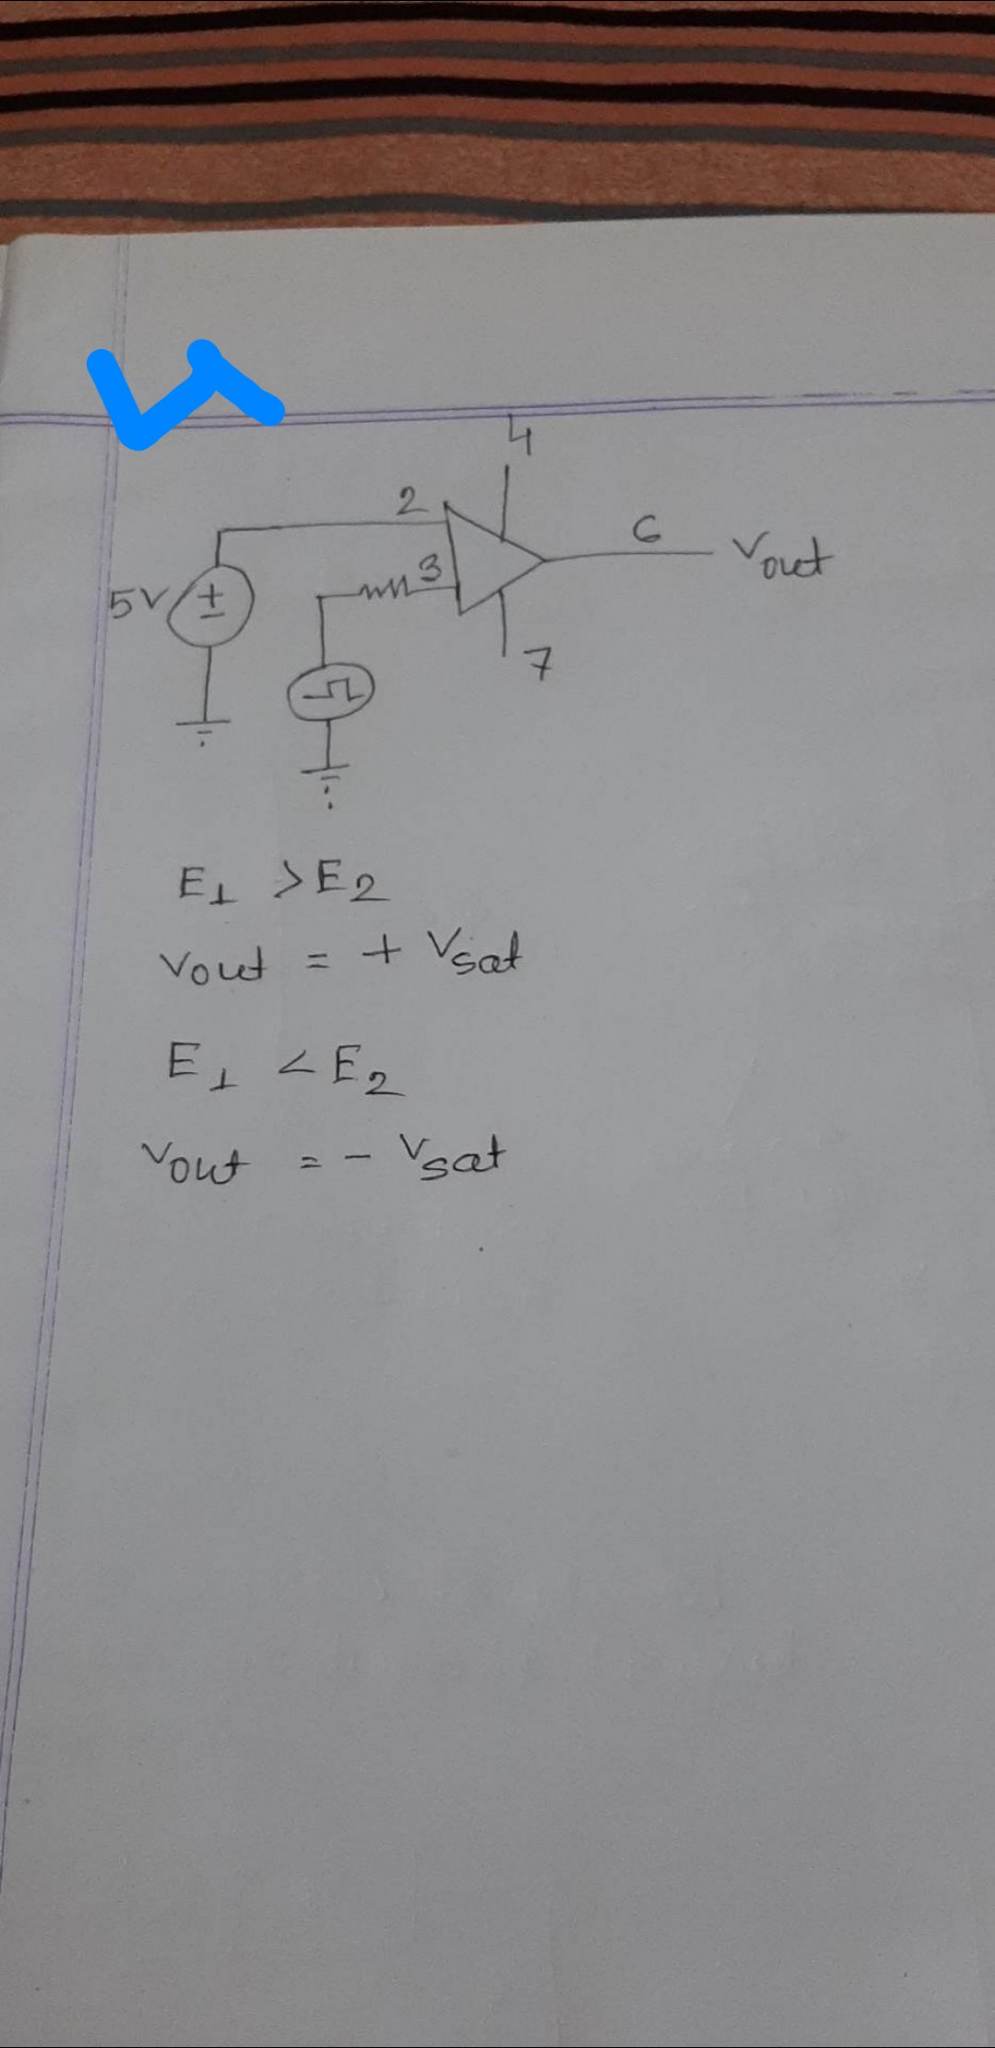 4
2
6
Vout
5V
±
3
7
E1 > E2
Vout = + Vsat
E1 < E2
Vout = - Vsat